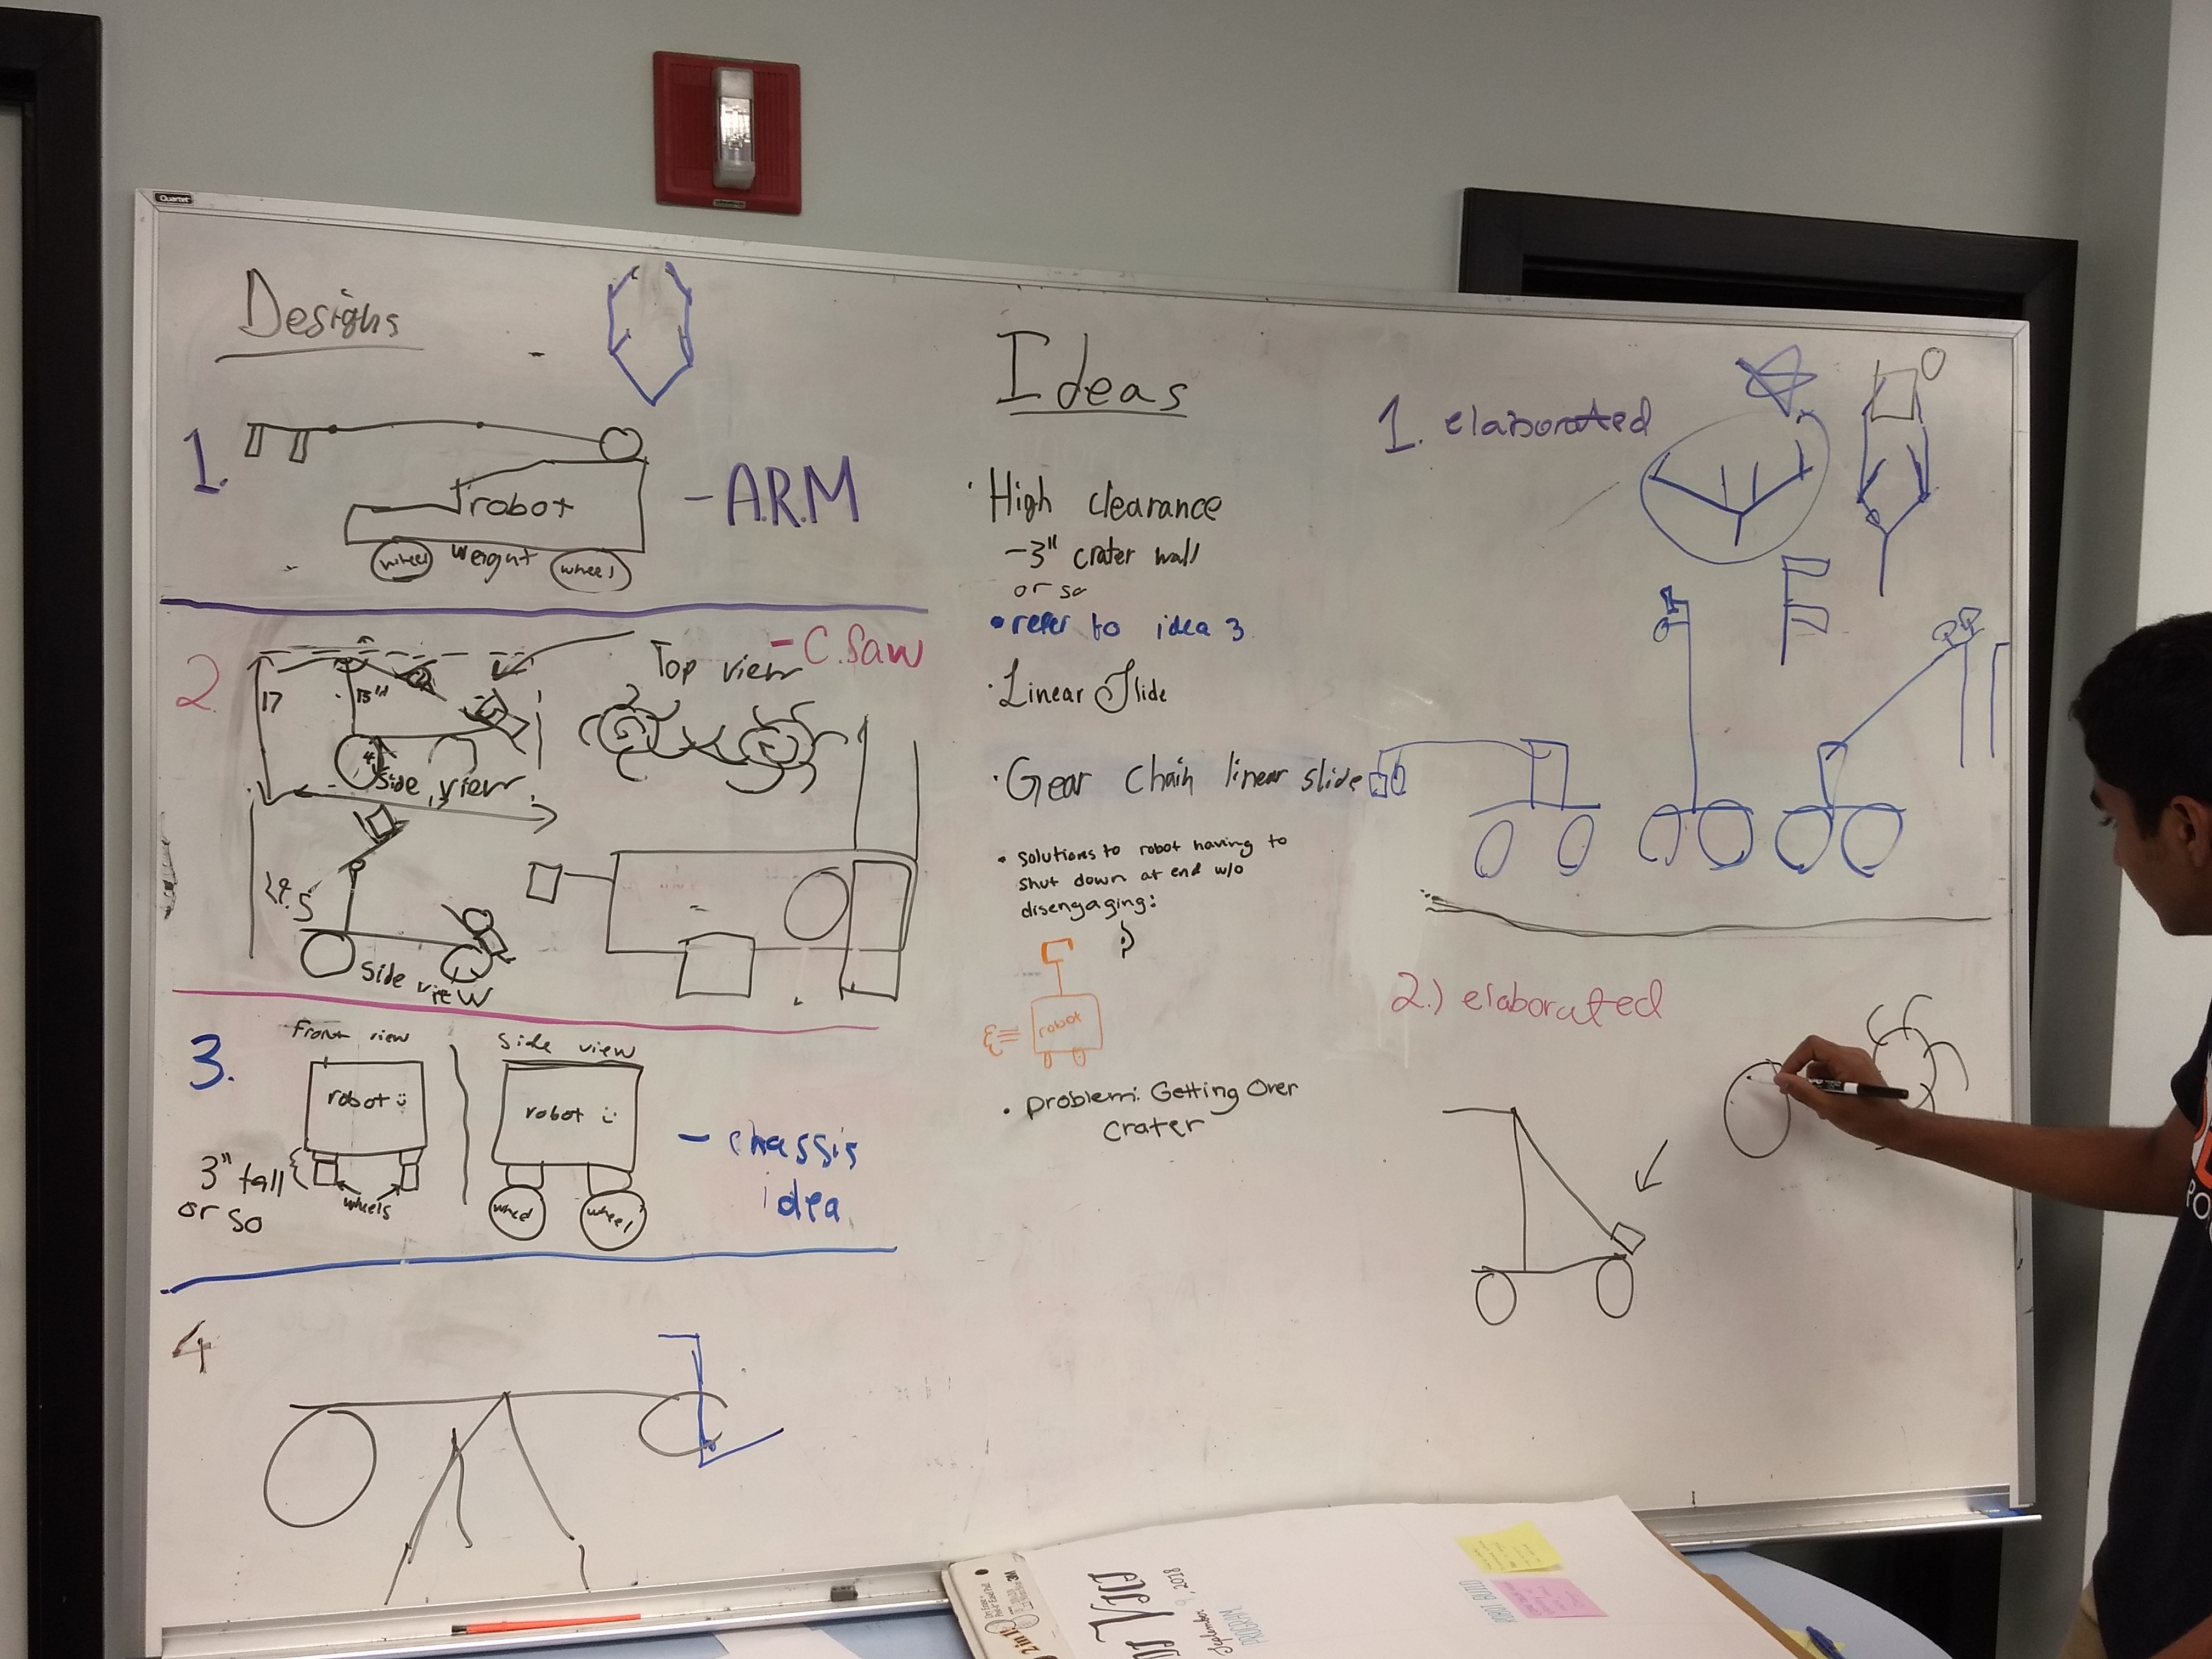 Quartet
Designs
1.
robot
wheel
weight
wheel
- A.R.M
2
Top view
- C.Saw
17
13"
Side view
Side view
3.
Front view
robot
3" tall
or so
wheels
Side view
robot
wheel
wheel
- chassis
idea
4
Ideas
· High clearance
- 3" crater wall
or so
• refer to idea 3
· Linear Slide
· Gear Chain linear slide
• Solutions to robot having to
shut down at end w/o
disengaging:
robot
• Problem: Getting Over
Crater
1. elaborated
2.) elaborated
September 9, 2018
PROGRAM